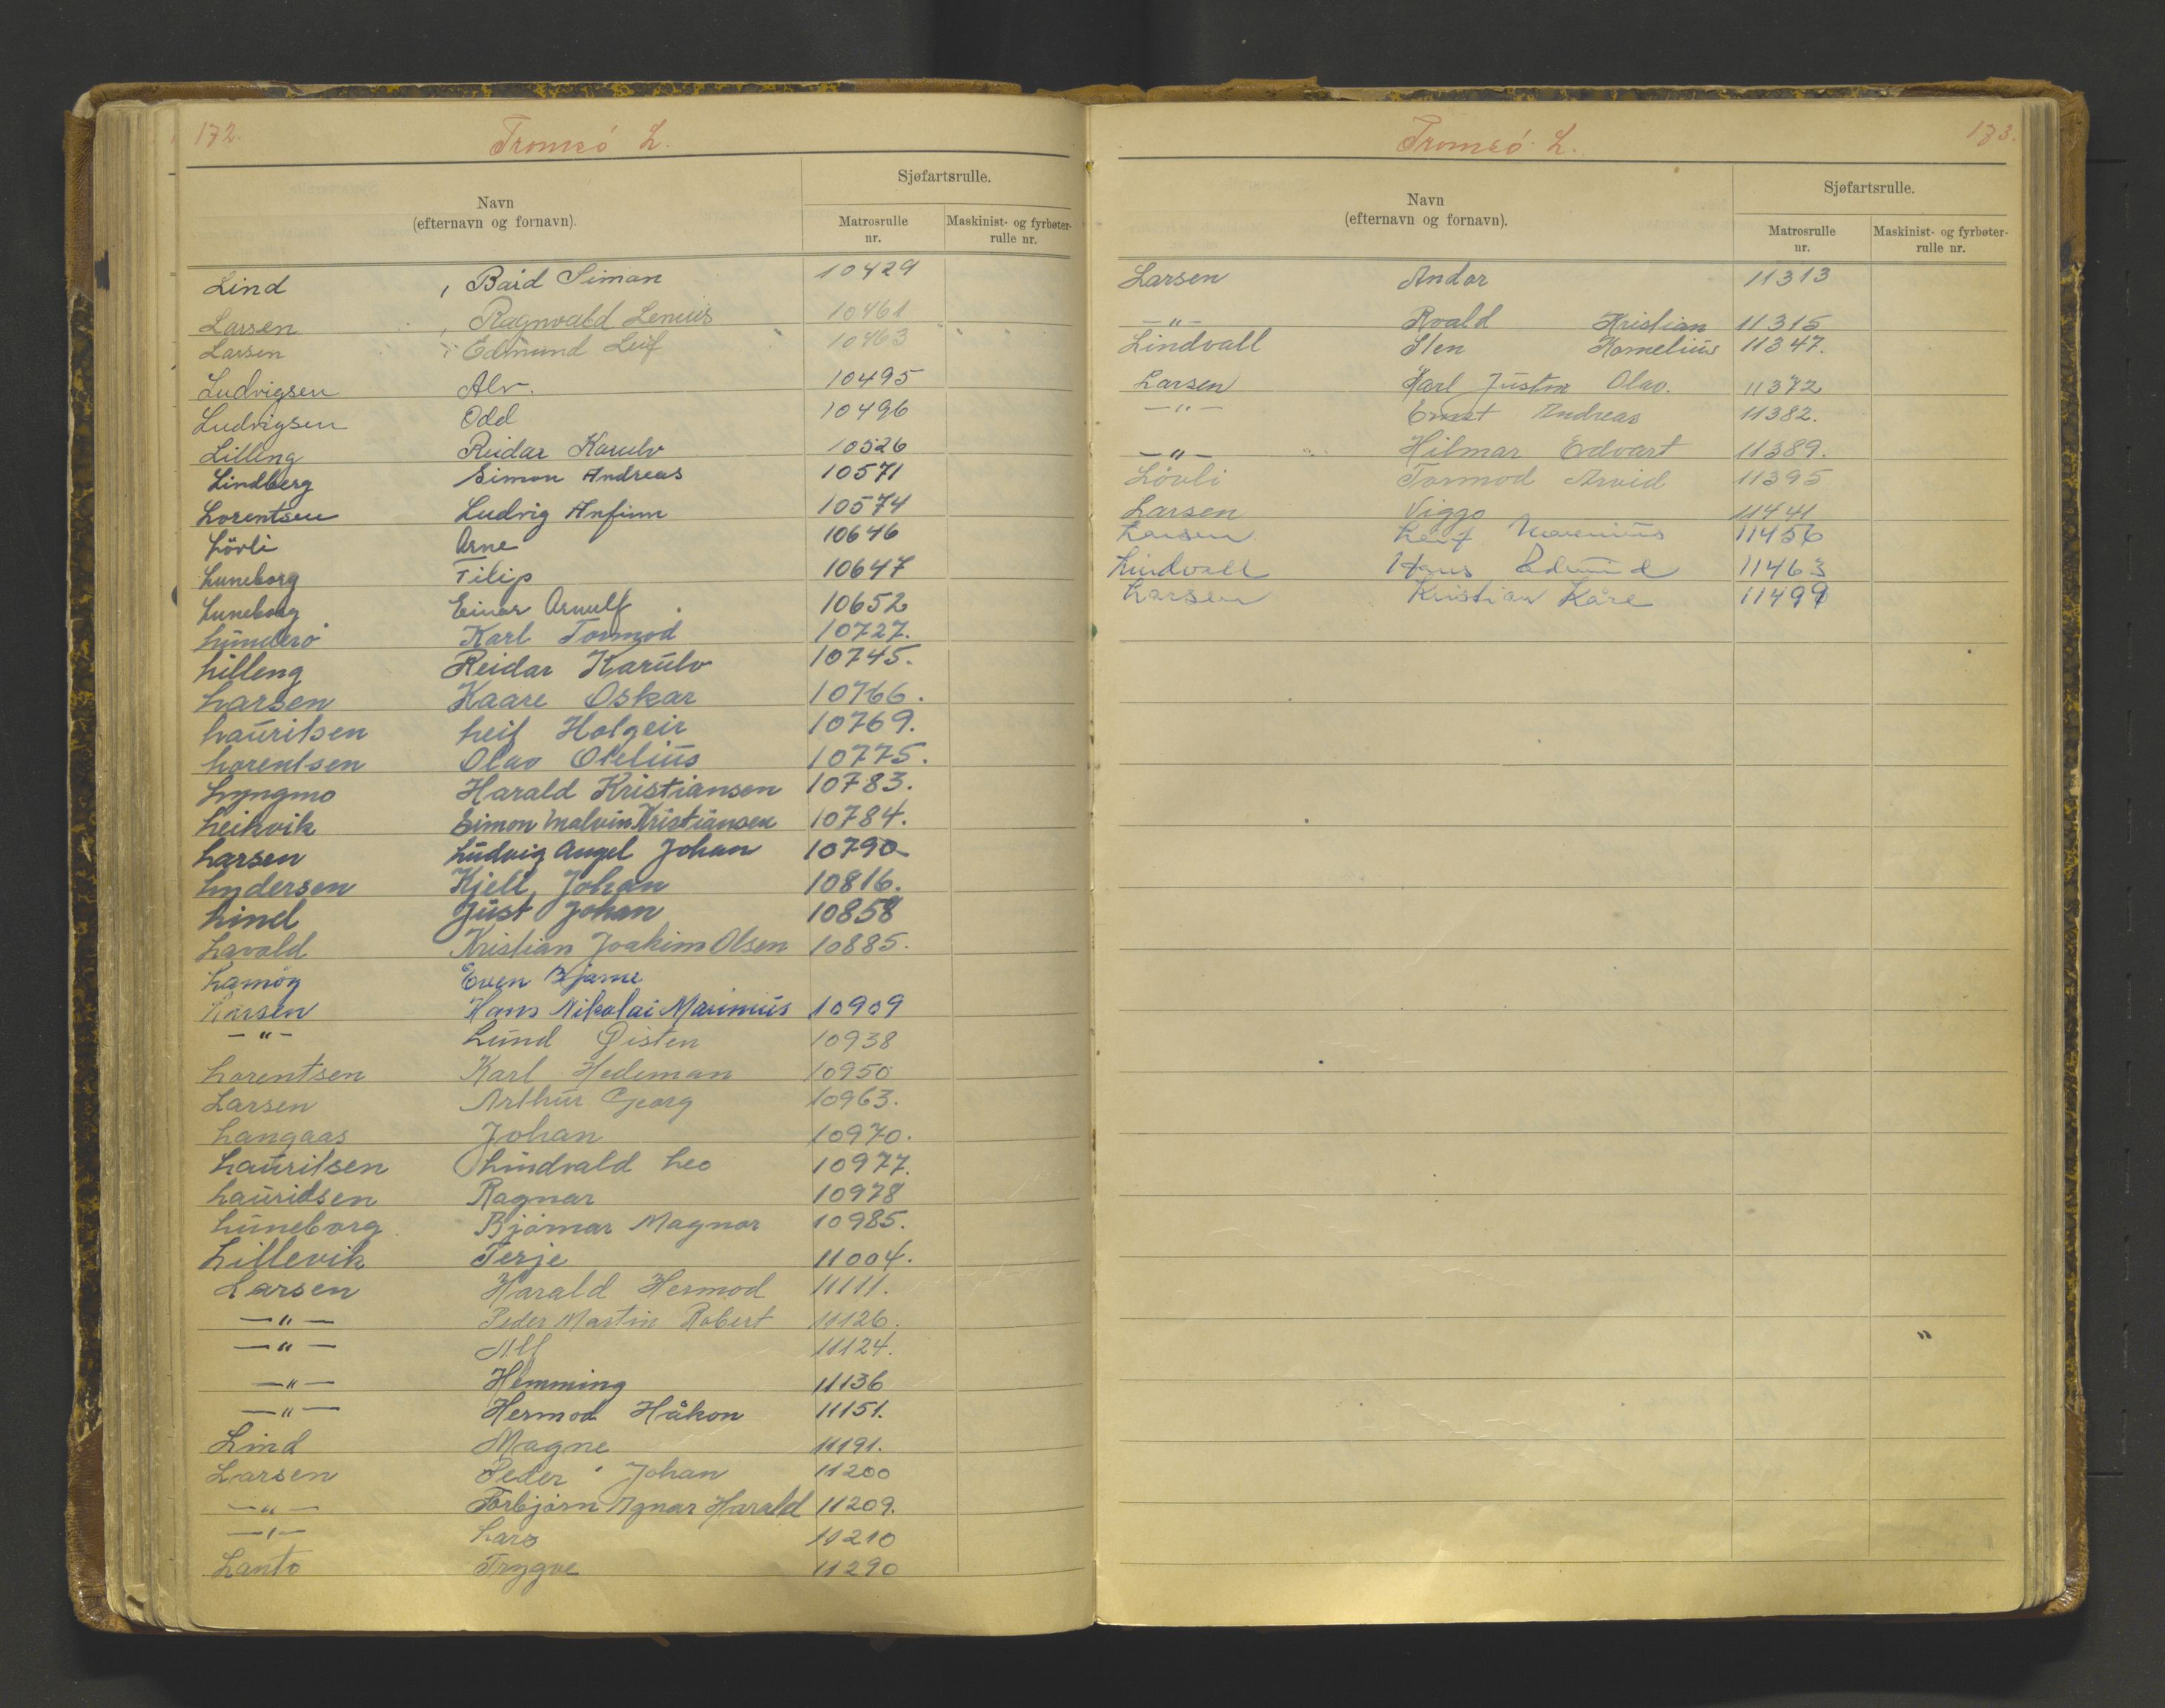 172.
Tromsö L.
Navn
(efternavn og fornavn).
Sjøfartsrulle.
Matrosrulle
nr.
Maskinist- og fyrbøter-
rulle nr.
Lind , Bård Siman 10429
Larsen , Ragnvald Lenius 10461
Larsen Edmund Leif 10463
Ludvigsen Alv. 10495
Ludvigsen Odd 10496
Lilleng Reidar Karulv 10526
Lindberg Simon Andreas 10571
Lorentsen Ludvig Anfinn 10574
Lövli Arne 10646
Luneborg Filip 10647
Luneborg Einar Arnulf 10652
Lunderö Karl Tormod 10727.
Lilleng Reidar Karulv 10745.
Larsen Kaare Oskar 10766.
Lauritsen Leif Holgeir 10769.
Lorentsen Olav Otelius 10775.
Lyngmo Harald Kristiansen 10783.
Leikvik Simon Malvin Kristiansen 10784.
Larsen Ludvig Angel Johan 10790
Lydersen Kjell Johan 10816.
Lind Just Johan 10858
Lavold Kristian Joakim Olsen 10885.
Lamöy Even Bjarne
Larsen Hans Nikolai Marinius 10909
—"— Lund Øisten 10938
Lorentsen Karl Hedeman 10950
Larsen Arthur Georg 10963.
Langaas Johan 10970.
Lauritsen Lindvald Leo 10977.
Lauridsen Ragnar 10978
Luneborg Bjömar Magnor 10985.
Lillevik Terje 11004.
Larsen Harald Hermod 11111.
—"— Peder Martin Robert 11126.
—"— Alf 11124.
—"— Hemming 11136
—"— Hermod Håkon 11151.
Lind Magne 11191.
Larsen Peder Johan 11200
—"— Torbjörn Agnar Harald 11209.
—"— Lars 11210
Lanto Trygve 11290
173.
Tromsö L.
Navn
(efternavn og fornavn).
Sjøfartsrulle.
Matrosrulle
nr.
Maskinist- og fyrbøter-
rulle nr.
Larsen Andor 11313
—"— Roald Kristian 11315
Lindvall Sten Kornelius 11347.
Larsen Karl Justin Olav. 11372
—"— Ernst Andreas 11382.
—"— Hilmar Edvart 11389.
Lövli Tormod Arvid 11395
Larsen Viggo 11441
Larsen Leif Marenius 11456
Lindvall Hans Edmund 11463
Larsen Kristian Kåre 11499
"